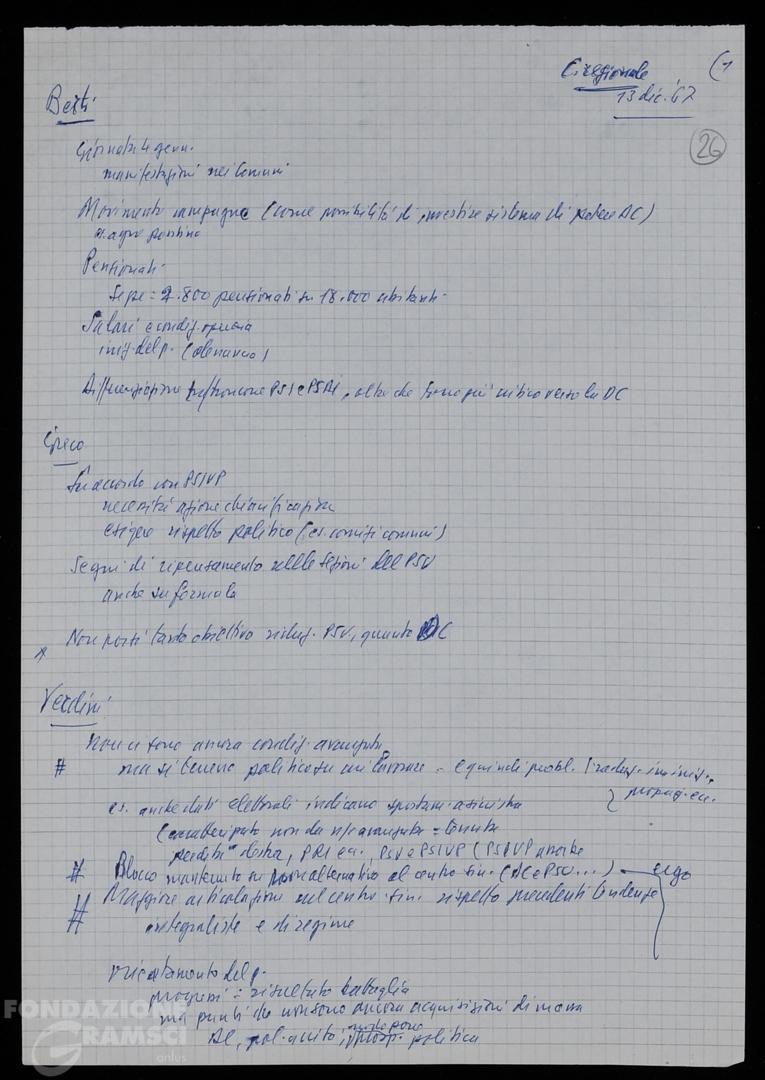 C. regionale
13 dic. '67
(1
26
Berti
Giornata 4 genn.
manifestazioni nei Comuni
Movimento campagne (come possibilità di investire sistema di potere DC)
agro pontino
Pensionati
Sezze = 2.800 pensionati su 18.000 abitanti
Salari e condiz. operaia
iniz. del p.
Differenziazione PSI e PSDI, oltre che tono più critico verso la DC
Greco
Su accordo con PSIUP
necessità azione chiarificazione
esigere rispetto politico (es. comizi comuni)
Segni di ripensamento nelle sezioni del PSU
anche su formula
* Non porsi tanto obiettivo riduz. PSU, quanto DC
Verdini
Non ci sono ancora condiz. avanzate
# ma si terreno politico su cui lavorare - e quindi probl. traduz. in iniz.,
propag. ecc.
es. anche dati elettorali indicano spostam. a sinistra
(caratterizzato non da ns. avanzata = tenuta
perdita destra, PRI ecc., PSU e PSIUP (PSIUP anche
# Blocco mantenuto su non alternativo al centro sin. (DC e PSU...) ergo
# Maggiore articolazione nel centro-sin. rispetto precedenti tendenze
integraliste e di regime
Orientamento del p.
progressi = risultato battaglia
ma punti che non sono ancora acquisizioni di massa
pol. unita, politica
FONDAZIONE
GRAMSCI
onlus